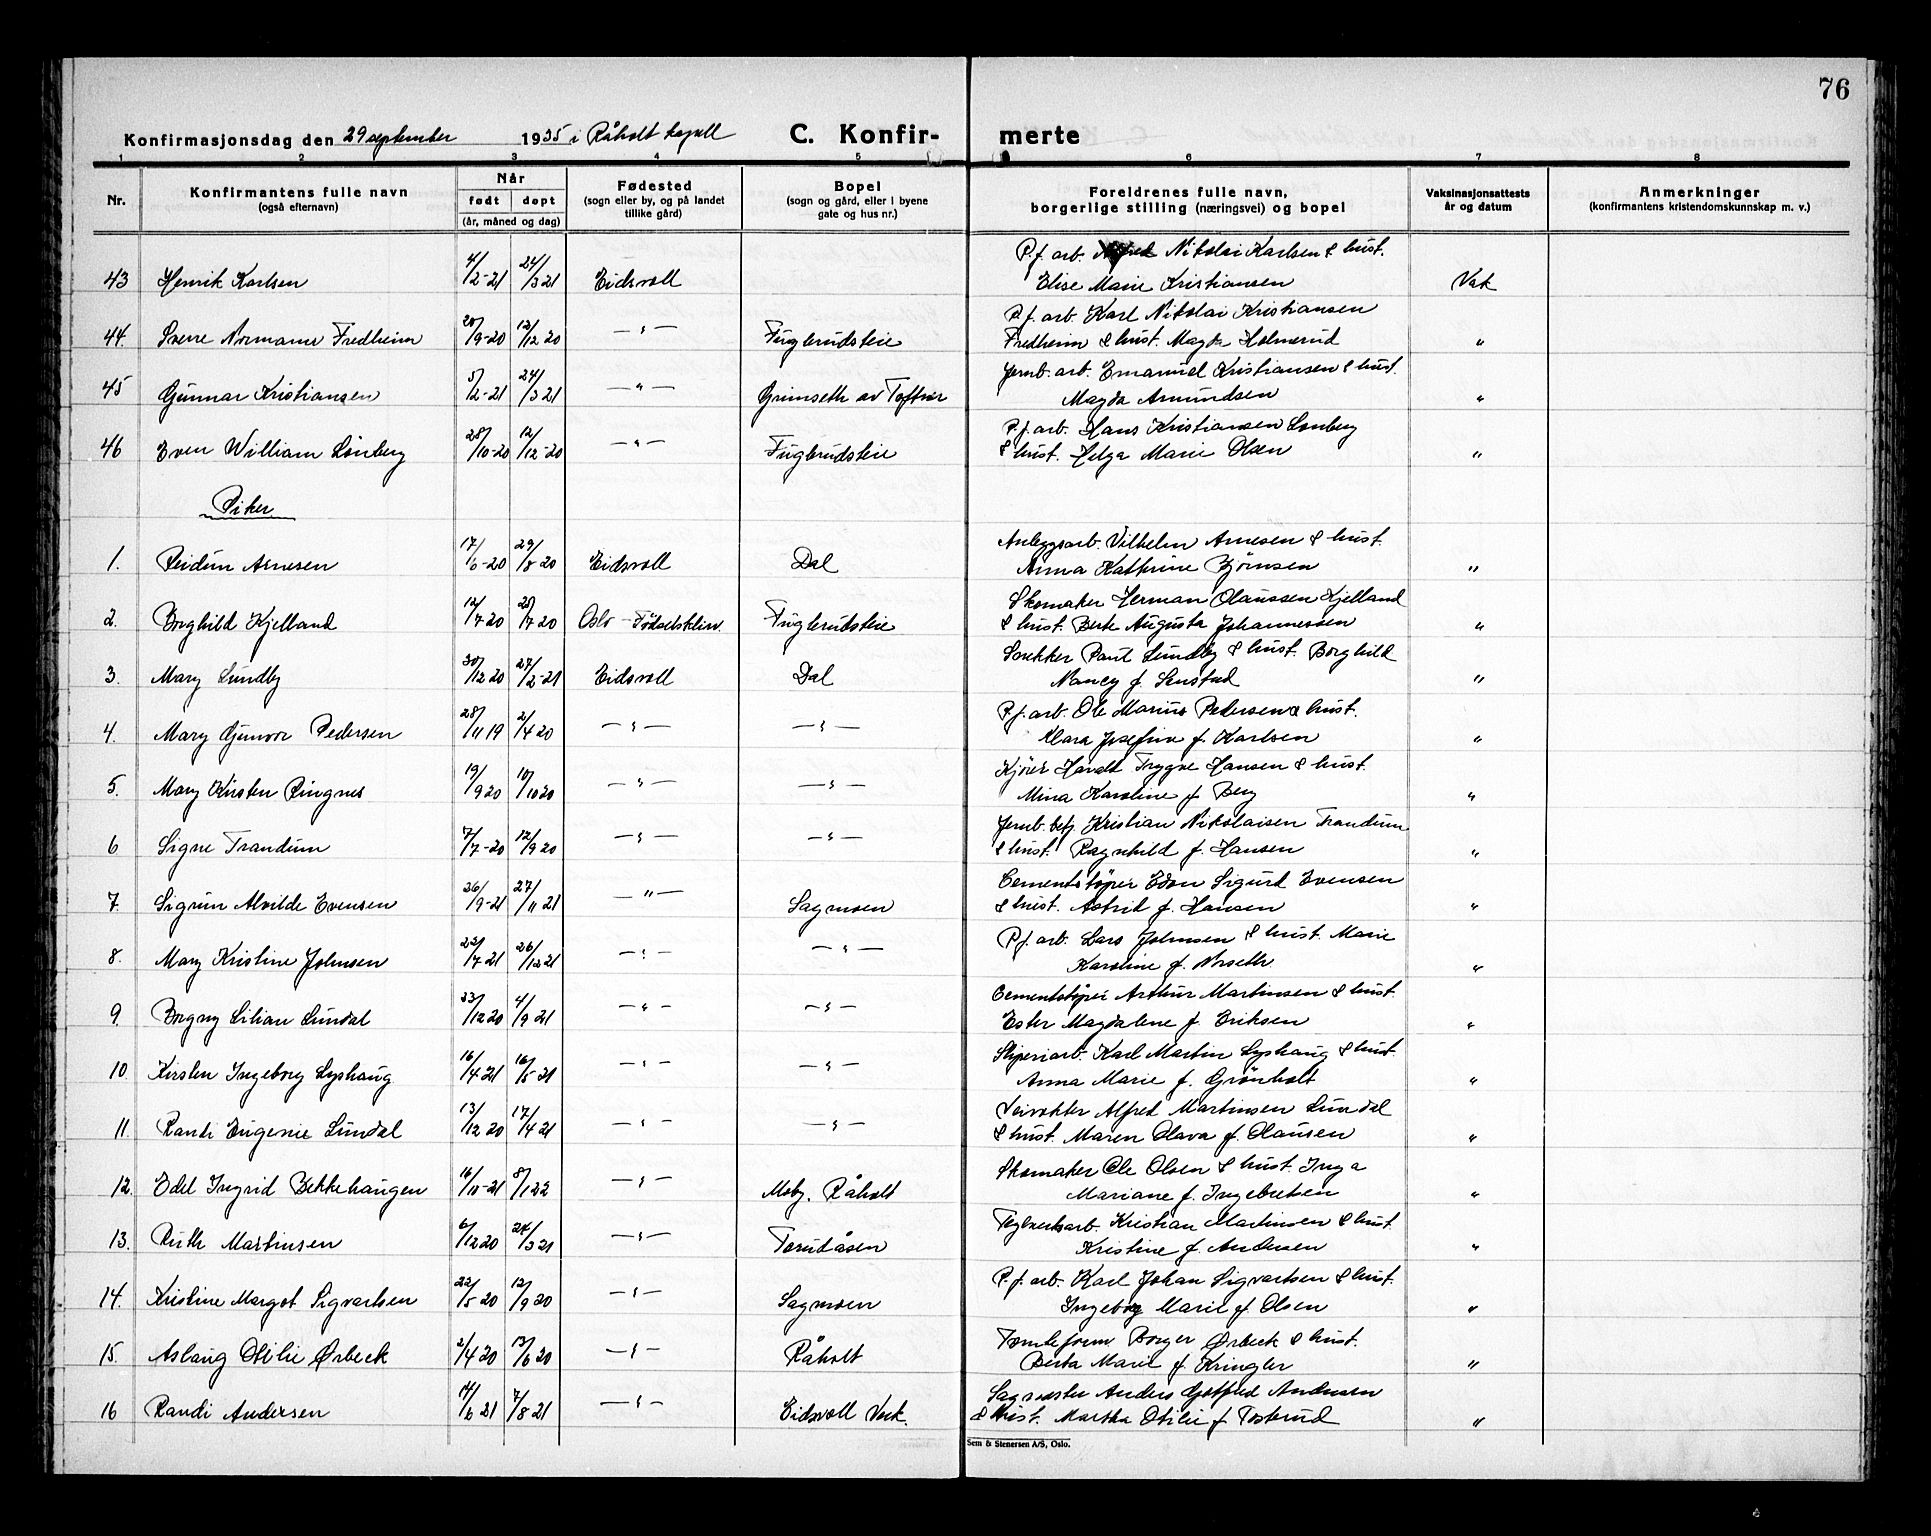 76
Konfirmasjonsdag den 29 september 1935 i Råholt kapell C. Konfir- merte
1 2 3 4 5 6 7 8
Nr. Konfirmantens fulle navn (også efternavn) Når født døpt (år, måned og dag) Fødested (sogn eller by, og på landet tillike gård) Bopel (sogn og gård, eller i byene gate og hus nr.) Foreldrenes fulle navn, borgerlige stilling (næringsvei) og bopel Vaksinasjonsattests år og datum Anmerkninger (konfirmantens kristendomskunnskap m. v.)
P.f. arb. Nikolai Karlsen & hust.
43 Henrik Karlsen 4/2-21 24/3 21 Eidsvoll Elise Marie Kristiansen Vak
P.f. arb. Karl Nikolai Kristiansen
44. Sverre Normann Fredheim 20/9-20 12/12 20 —"— Fuglerudsteie Fredheim & hust. Magda Holmerud "
Jernb. arb. Emanuel Kristiansen & hust.
45 Gunnar Kristiansen 5/2-21 24/3 21 —"— Grimseth av Toftner Magda Amundsen "
P.f. arb. Hans Kristiansen Lönberg
46 Even William Lönberg 28/10-20 12/12-20 —"— Fuglerudsteie & hust. Helga Marie Olsen "
Piker
Anleggsarb. Vilhelm Arnesen & hust.
1. Reidun Arnesen 17/6-20 29/8 20 Eidsvoll Dal Anna Kathrine Bjørnsen "
Skomaker Herman Olaussen Kjelland
2. Borghild Kjelland 12/7 20 20/7 20 Oslo - Fødselsklin. Fuglerudsteie & hust. Berte Augusta Johannessen "
Snekker Paul Lundby & hust. Borghild
3. Mary Lundby 30/12 20 27/2-21 Eidsvoll Dal Nancy f. Senstad "
P.f. arb. Ole Marius Pedersen & hust.
4. Mary Gunvor Pedersen 28/11 19 2/4 20 —"— —"— Klara Josefine f. Karlsen "
Kjörer Harald Trygve Hansen & hust.
5. Mary Kirsten Ringnes 19/9 20 10/10 20 —"— —"— Mina Karoline f. Berg "
Jernb. betj. Kristian Nikolaisen Trandum
6 Signe Trandum 7/7-20 12/9 20 —"— —"— & hust. Ragnhild f. Hansen "
Cementstøper Edon Sigurd Evensen
7. Sigrun Alvilde Evensen 26/9-21 27/11 21 —"— Sagmoen & hust. Astrid f. Hansen "
P.f. arb. Lars Johnsen & hust. Marie
8. Mary Kristine Johnsen 22/7 21 26/12 21 —"— —"— Karoline f. Norseth "
Cementstøper Arthur Martinsen & hust.
9. Borgny Lilian Lundal 23/12 20 4/9 21 —"— —"— Ester Magdalene f. Eriksen "
Sliperiarb. Karl Martin Lyshaug & hust.
10. Kirsten Ingeborg Lyshaug 16/4 21 16/5 21 —"— —"— Anna Marie f. Grönholt "
Veivokter Alfred Martinsen Lundal
11. Randi Eugenie Lundal 13/12 20 17/4 21 —"— —"— & hust. Maren Olava f. Olausen "
Skomaker Ole Olsen & hust. Inga
12. Edel Ingrid Bekkehaugen 16/10-21 8/1 22 —"— Moby. Råholt Mariane f. Ingebretsen "
Teglverksarb. Kristian Martinsen & hust.
13. Ruth Martinsen 6/12 20 24/3 21 —"— Tørudåsen Kristine f. Andersen "
P.f. arb. Karl Johan Sigvartsen & hust.
14. Kristine Margot Sigvartsen 22/5 20 12/9 20 —"— Sagmoen Ingeborg Marie f. Olsen "
Tomteform Borger Ørbeck & hust.
15. Aslaug Otilie Ørbeck 2/4 20 13/6 20 —"— Råholt Berta Marie f. Kringler "
Sagmester Anders Gotfred Andersen
16 Randi Andersen 14/6 21 7/8 21 —"— Eidsvoll Verk. & hust. Martha Otilie f. Tosterud "
Sem & Stenersen A/S, Oslo.